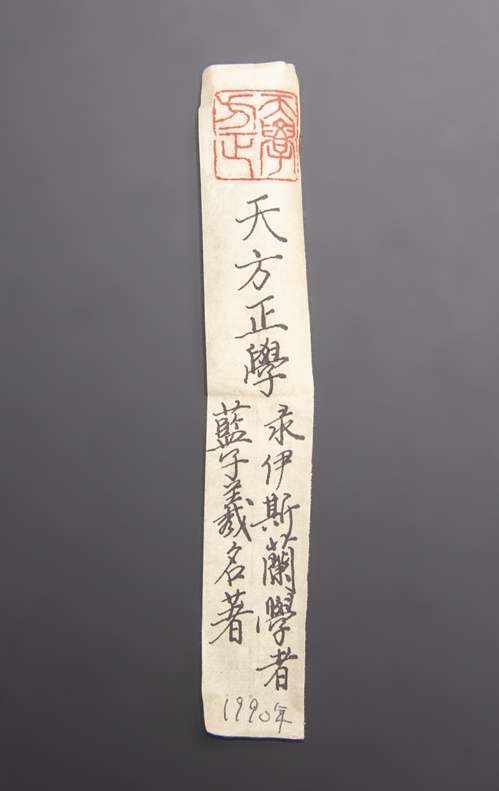 天方正學
天方正學
录伊斯蘭學者
藍子羲名著
1990年